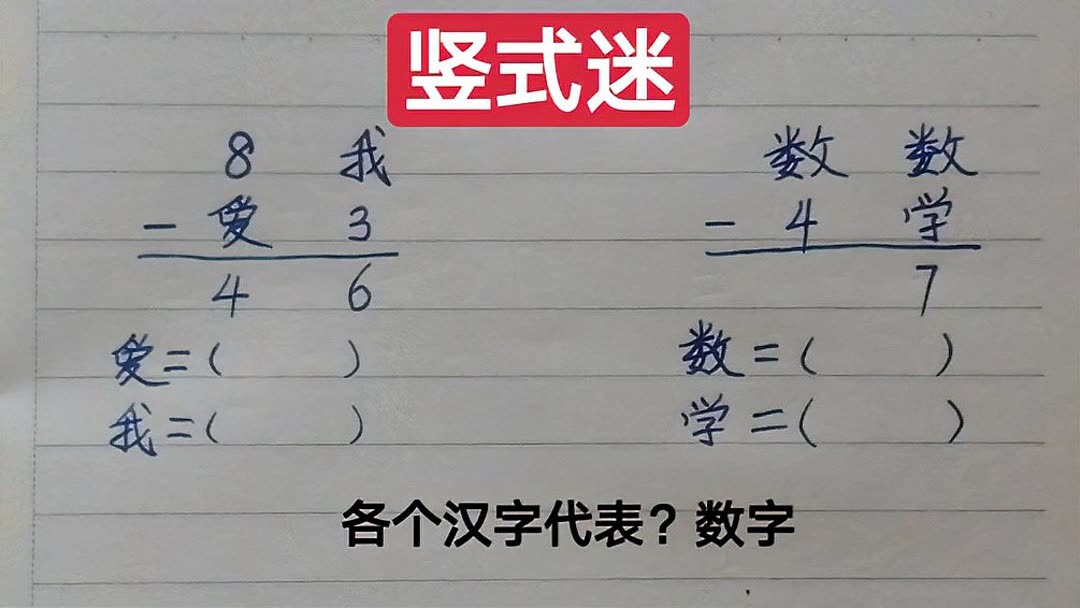 竖式迷
8 我
- 爱 3
4 6
爱=( )
我=( )
数 数
- 4 学
7
数=( )
学=( )
各个汉字代表？数字